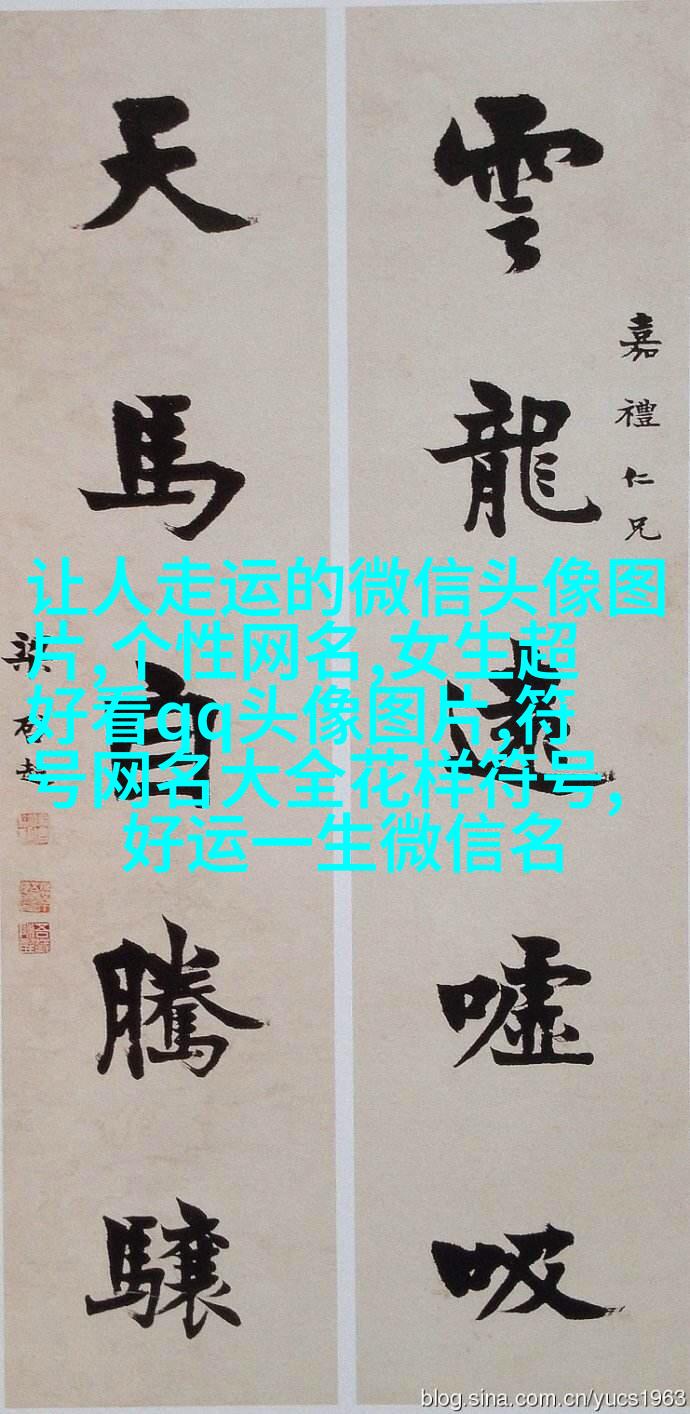 雲龍遠噓吸
嘉禮仁兄
天馬自騰驤
梁啓超
让人走运的微信头像图
片,个性网名,女生超
好看qq头像图片,符
号网名大全花样符号,
好运一生微信名
blog.sina.com.cn/yucs1963